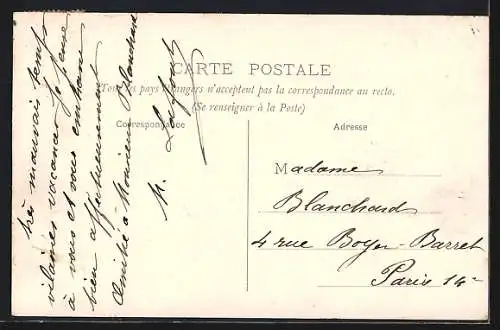 CARTE POSTALE
(Tous les pays étrangers n'acceptent pas la correspondance au recto.
(Se renseigner à la Poste)
Correspondance
Adresse
très mauvais temps
vilaines vacances. Je pense
à vous et vous embrasse
bien affectueusement
Amitié à Monsieur Blanchard
M.
Madame
Blanchard
4 rue Boyer-Barret
Paris 14e